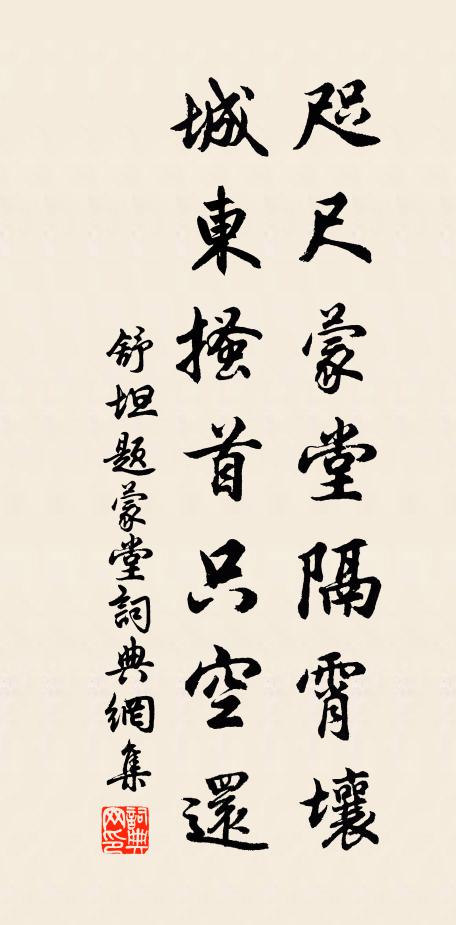 咫尺蒙堂隔霄壤
城東搔首只空還
舒坦題蒙堂詞典網集
詞典網印